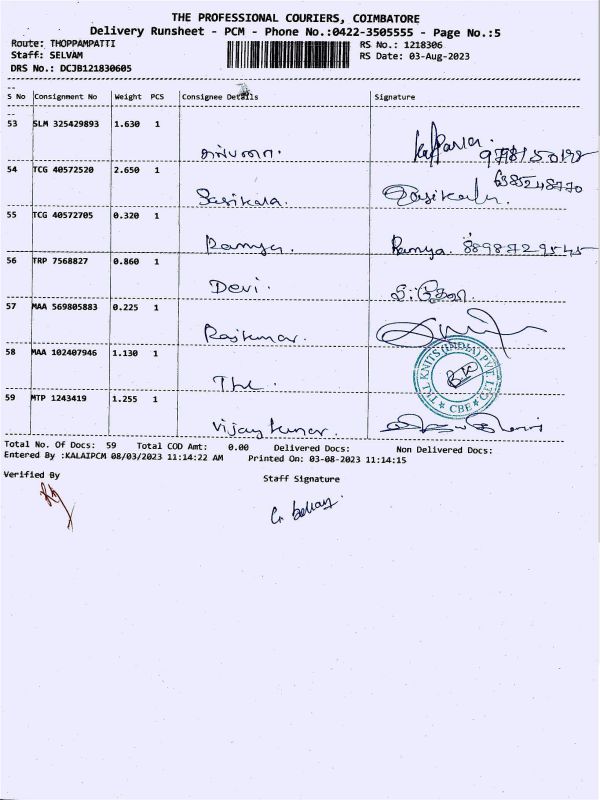 THE PROFESSIONAL COURIERS, COIMBATORE
Delivery Runsheet - PCM - Phone No.:0422-3505555 - Page No.:5
Route: THOPPAMPATTI RS No.: 1218306
Staff: SELVAM RS Date: 03-Aug-2023
DRS No.: DCJB121830605
S No Consignment No Weight PCS Consignee Details Signature
53 SLM 325429893 1.630 1
54 TCG 40572520 2.650 1 6385248770
Sasikala. Sasikala.
55 TCG 40572705 0.320 1
Ramya. Ramya.
56 TRP 7568827 0.860 1
Devi.
57 MAA 569805883 0.225 1
Rajkumar.
58 MAA 102407946 1.130 1
TKL KNITS (INDIA) PVT LTD
★ CBE ★
59 MTP 1243419 1.255 1
Vijaykumar.
Total No. Of Docs: 59 Total COD Amt: 0.00 Delivered Docs: Non Delivered Docs:
Entered By :KALAIPCM 08/03/2023 11:14:22 AM Printed On: 03-08-2023 11:14:15
Verified By Staff Signature